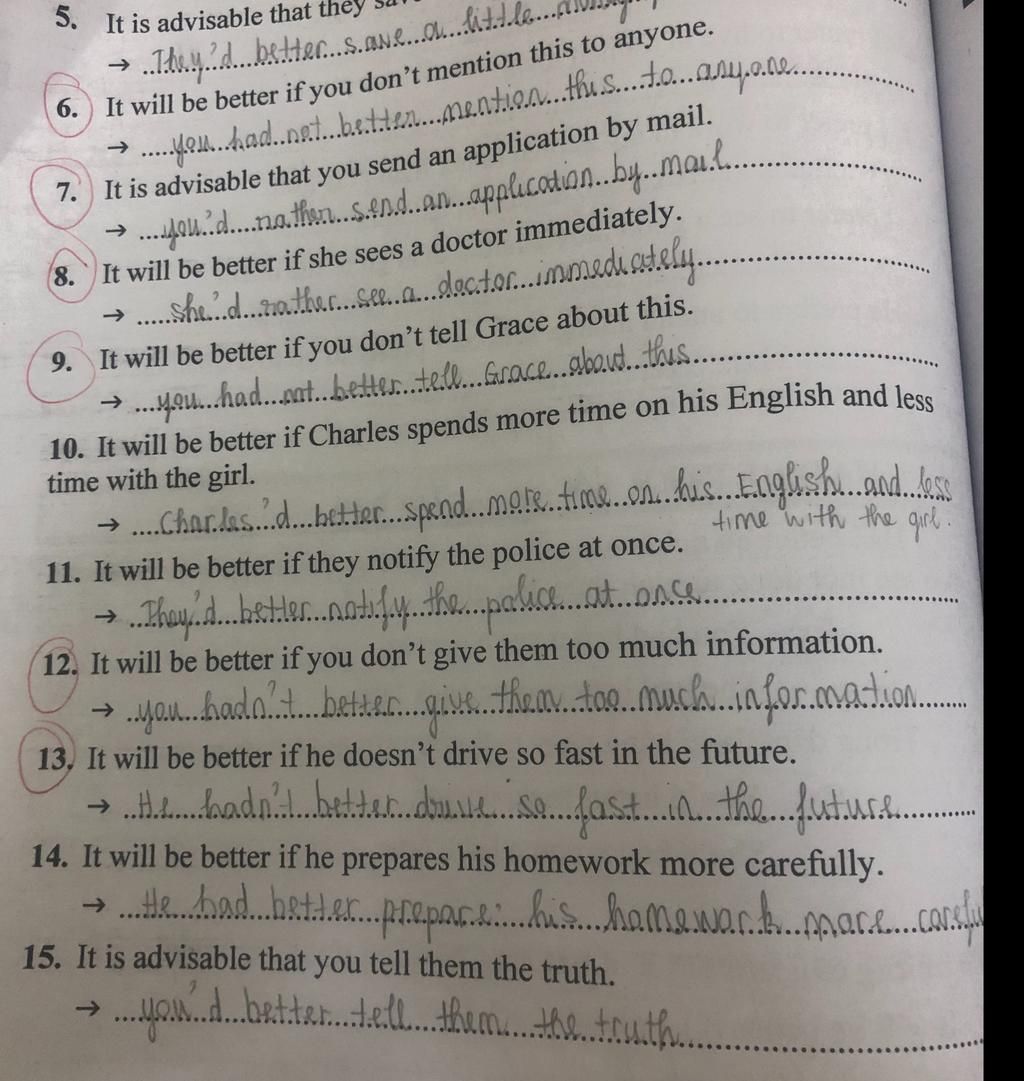 5. It is advisable that they
→ They'd better save a little
6. It will be better if you don't mention this to anyone.
→ you had not better mention this to anyone
7. It is advisable that you send an application by mail.
→ you'd rather send an application by mail
8. It will be better if she sees a doctor immediately.
→ she'd rather see a doctor immediately
9. It will be better if you don't tell Grace about this.
→ you had not better tell Grace about this
10. It will be better if Charles spends more time on his English and less
time with the girl.
→ Charles'd better spend more time on his English and less
time with the girl.
11. It will be better if they notify the police at once.
→ They'd better notify the police at once
12. It will be better if you don't give them too much information.
→ you hadn't better give them too much information
13. It will be better if he doesn't drive so fast in the future.
→ He hadn't better drive so fast in the future
14. It will be better if he prepares his homework more carefully.
→ He had better prepare his homework more carefu
15. It is advisable that you tell them the truth.
→ you'd better tell them the truth